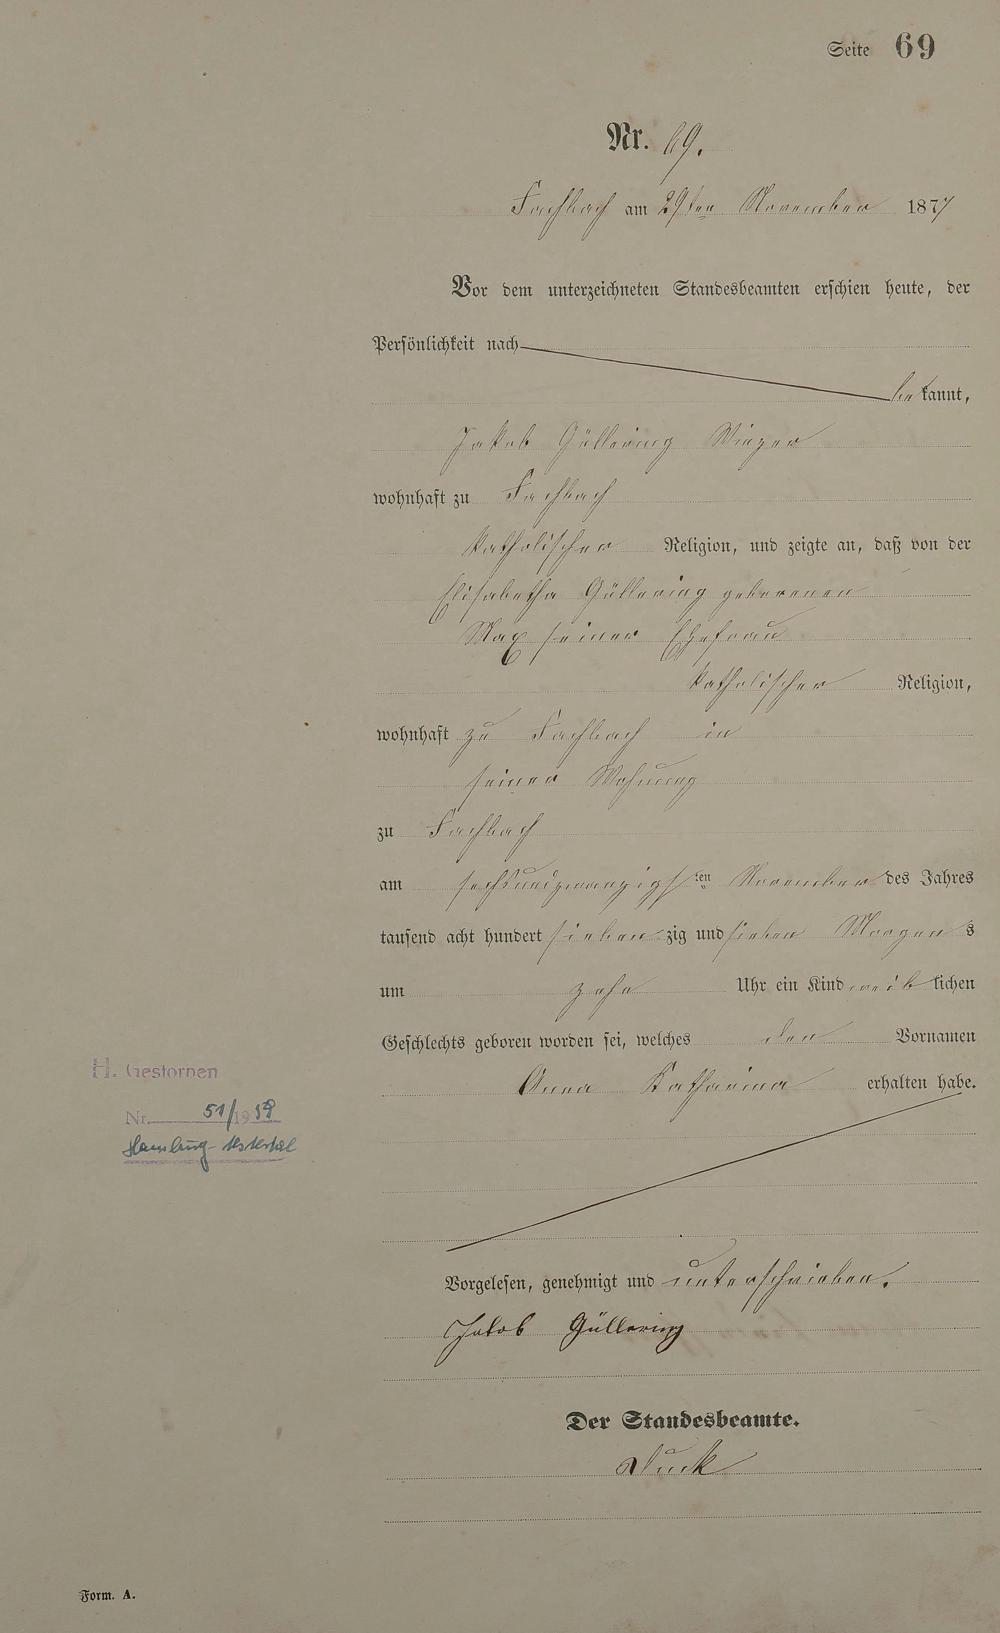 Seite 69
Nr. 69.
Fachbach am 29ten November 1877
Vor dem unterzeichneten Standesbeamten erschien heute, der
Persönlichkeit nach
be kannt,
Jakob Güllering Winzer
wohnhaft zu Fachbach
katholischer Religion, und zeigte an, daß von der
Elisabetha Güllering geborenen
Max seiner Ehefrau
katholischer Religion,
wohnhaft zu Fachbach in
seiner Wohnung
zu Fachbach
am sechsundzwanzigsten November des Jahres
tausend acht hundert sieben zig und sieben Morgens
um zehn Uhr ein Kind weib lichen
Geschlechts geboren worden sei, welches den Vornamen
Anna Katharina erhalten habe.
H. Gestorben
Nr. 51/1959
Hamburg-
Vorgelesen, genehmigt und unterschrieben.
Jakob Güllering
Der Standesbeamte.
Form. A.